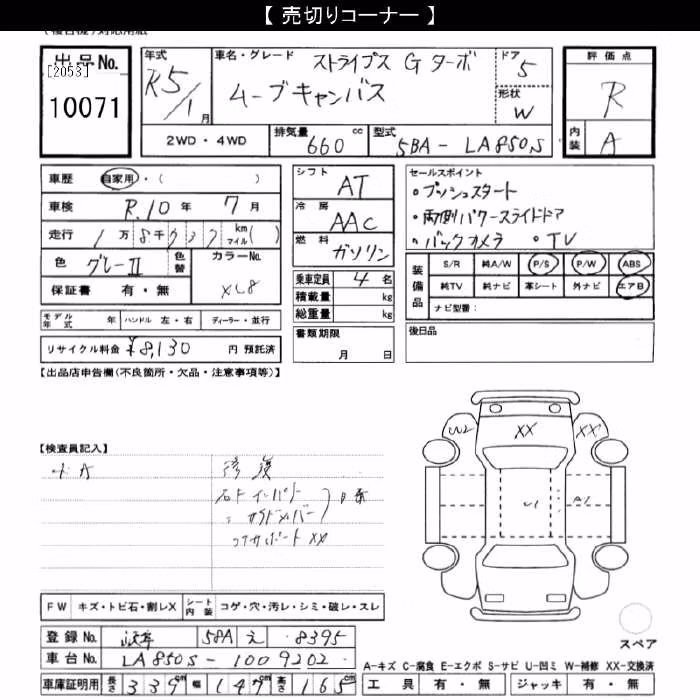 【 売切りコーナー 】
出品No.
[2053]
10071
年式
R5/1月
車名・グレード
ストライプス Gターボ
ムーブキャンバス
ドア
5
形状
W
評価点
R
内装
A
2WD・4WD
排気量
660 cc
型式
5BA-LA850S
車歴
自家用・( )
車検
R.10年 7月
走行
km
マイル( )
色
グレーII
色替
カラーNo.
XL8
保証書 有・無
シフト
AT
冷房
AAC
燃料
ガソリン
乗車定員 4名
積載量 kg
総重量 kg
書類期限
月 日
セールスポイント
・プッシュスタート
・両側パワースライドドア
・バックカメラ ・TV
装備品
S/R 純A/W P/S P/W ABS
純TV 純ナビ 革シート 外ナビ エアB
ナビ型番:
後日品
モデル年式 年
ハンドル 左・右
ディーラー・並行
リサイクル料金 ¥8,130 円 預託済
【出品店申告欄(不良箇所・欠品・注意事項等)】
【検査員記入】
修復
XX
W2
XX
XX
U1
A1
FW キズ・トビ石・割レX
シート内装 コゲ・穴・汚レ・シミ・破レ・スレ
登録No.
58A え 8395
車台No. LA850S-1009202
車庫証明用 長さ 339cm 幅 147cm 高さ 165cm
スペア
A-キズ C-腐食 E-エクボ S-サビ U-凹ミ W-補修 XX-交換済
工具 有・無 ジャッキ 有・無